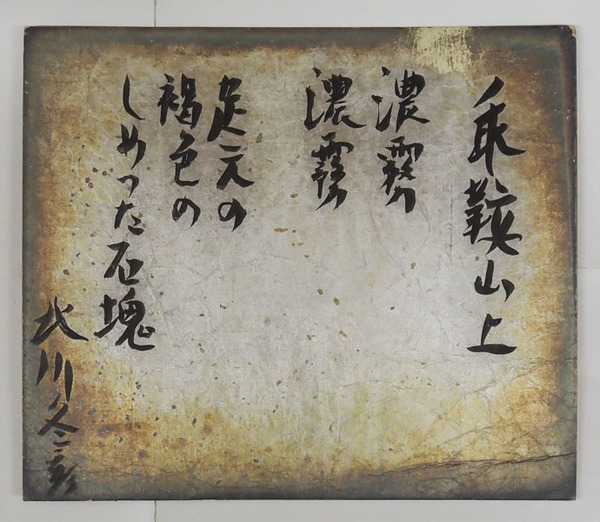 乗鞍山上
濃霧
濃霧
足元の
褐色の
しめった石塊
北川冬彦